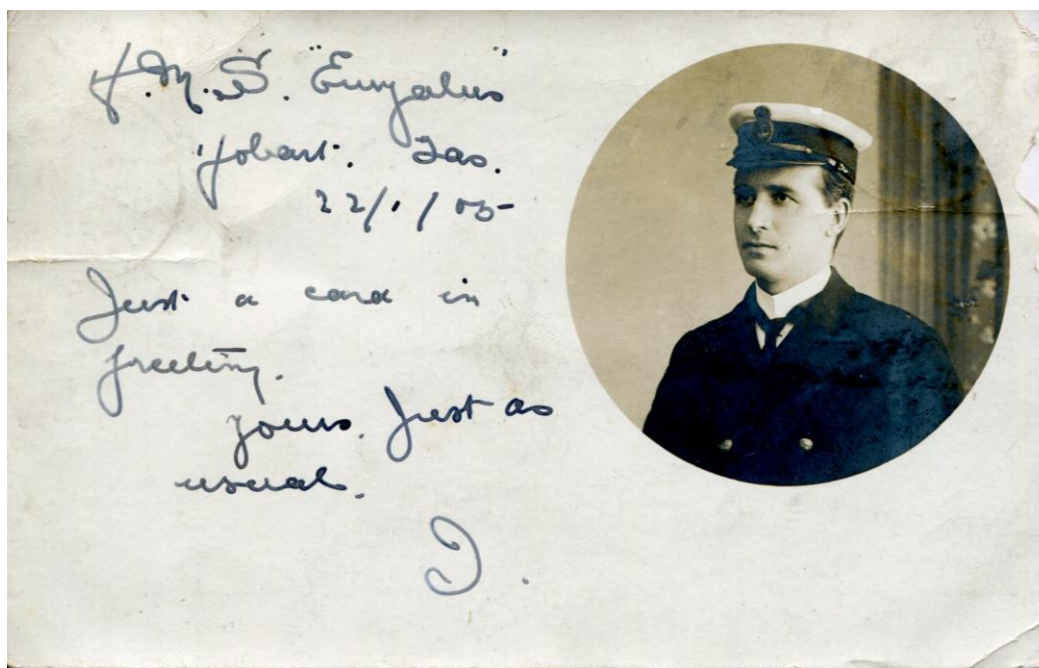 H.M.S. "Euryalus"
Hobart. Tas.
22/1/05-
Just a card in
greeting.
Yours. Just as
usual.
D.